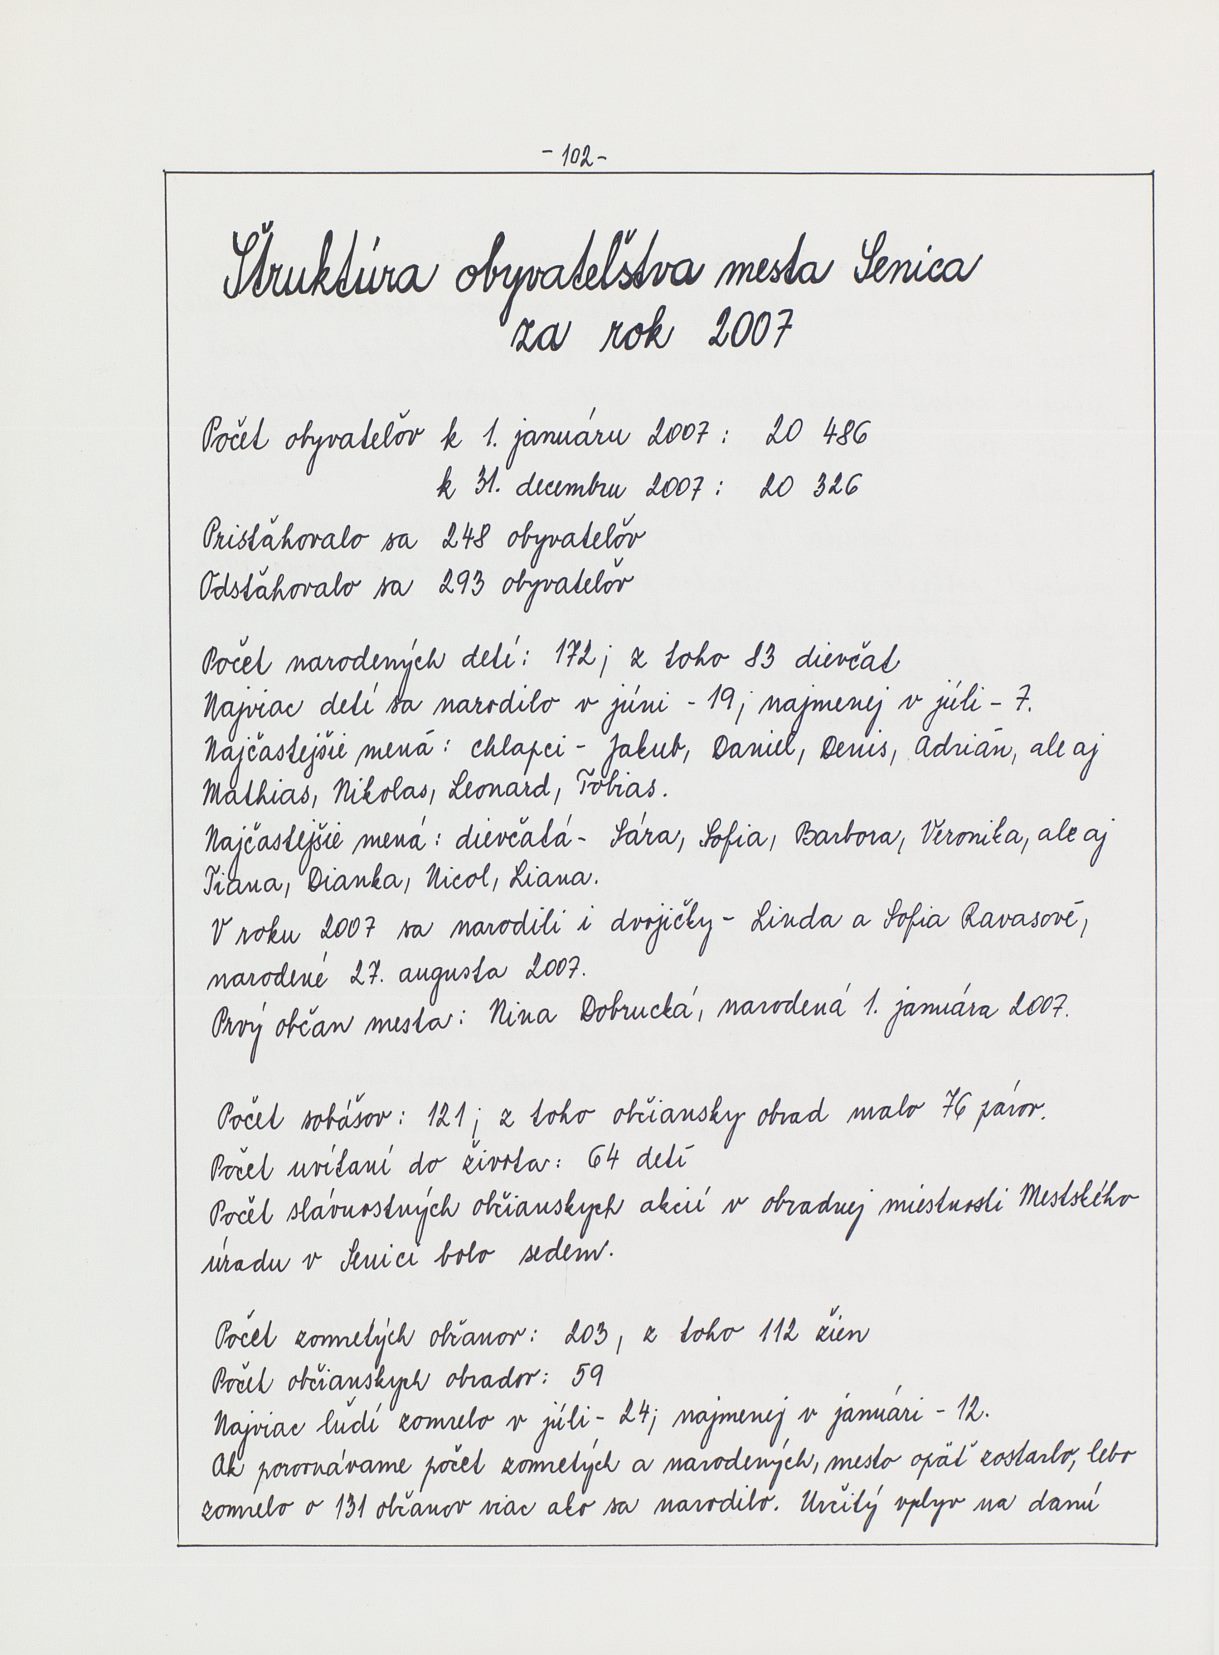 - 102 -
Štruktúra obyvateľstva mesta Senica
za rok 2007
Počet obyvateľov k 1. januáru 2007: 20 486
k 31. decembru 2007: 20 326
Prisťahovalo sa 248 obyvateľov
Odsťahovalo sa 293 obyvateľov
Počet narodených detí: 172; z toho 83 dievčat
Najviac detí sa narodilo v júni - 19; najmenej v júli - 7.
Najčastejšie mená: chlapci - Jakub, Daniel, Denis, Adrián, ale aj
Mathias, Nikolas, Leonard, Tobias.
Najčastejšie mená: dievčatá - Sára, Sofia, Barbora, Veronika, ale aj
Tiana, Dianka, Nicol, Liana.
V roku 2007 sa narodili i dvojičky - Linda a Sofia Ravasové,
narodené 27. augusta 2007.
Prvý občan mesta: Nina Dobrucká, narodená 1. januára 2007.
Počet sobášov: 121; z toho občiansky obrad malo 76 párov.
Počet uvítaní do života: 64 detí
Počet slávnostných občianskych akcií v obradnej miestnosti Mestského
úradu v Senici bolo sedem.
Počet zomretých občanov: 203, z toho 112 žien
Počet občianskych obradov: 59
Najviac ľudí zomrelo v júli - 24; najmenej v januári - 12.
Ak porovnávame počet zomretých a narodených, mesto opäť zostarlo, lebo
zomrelo o 131 občanov viac ako sa narodilo. Určitý vplyv na danú